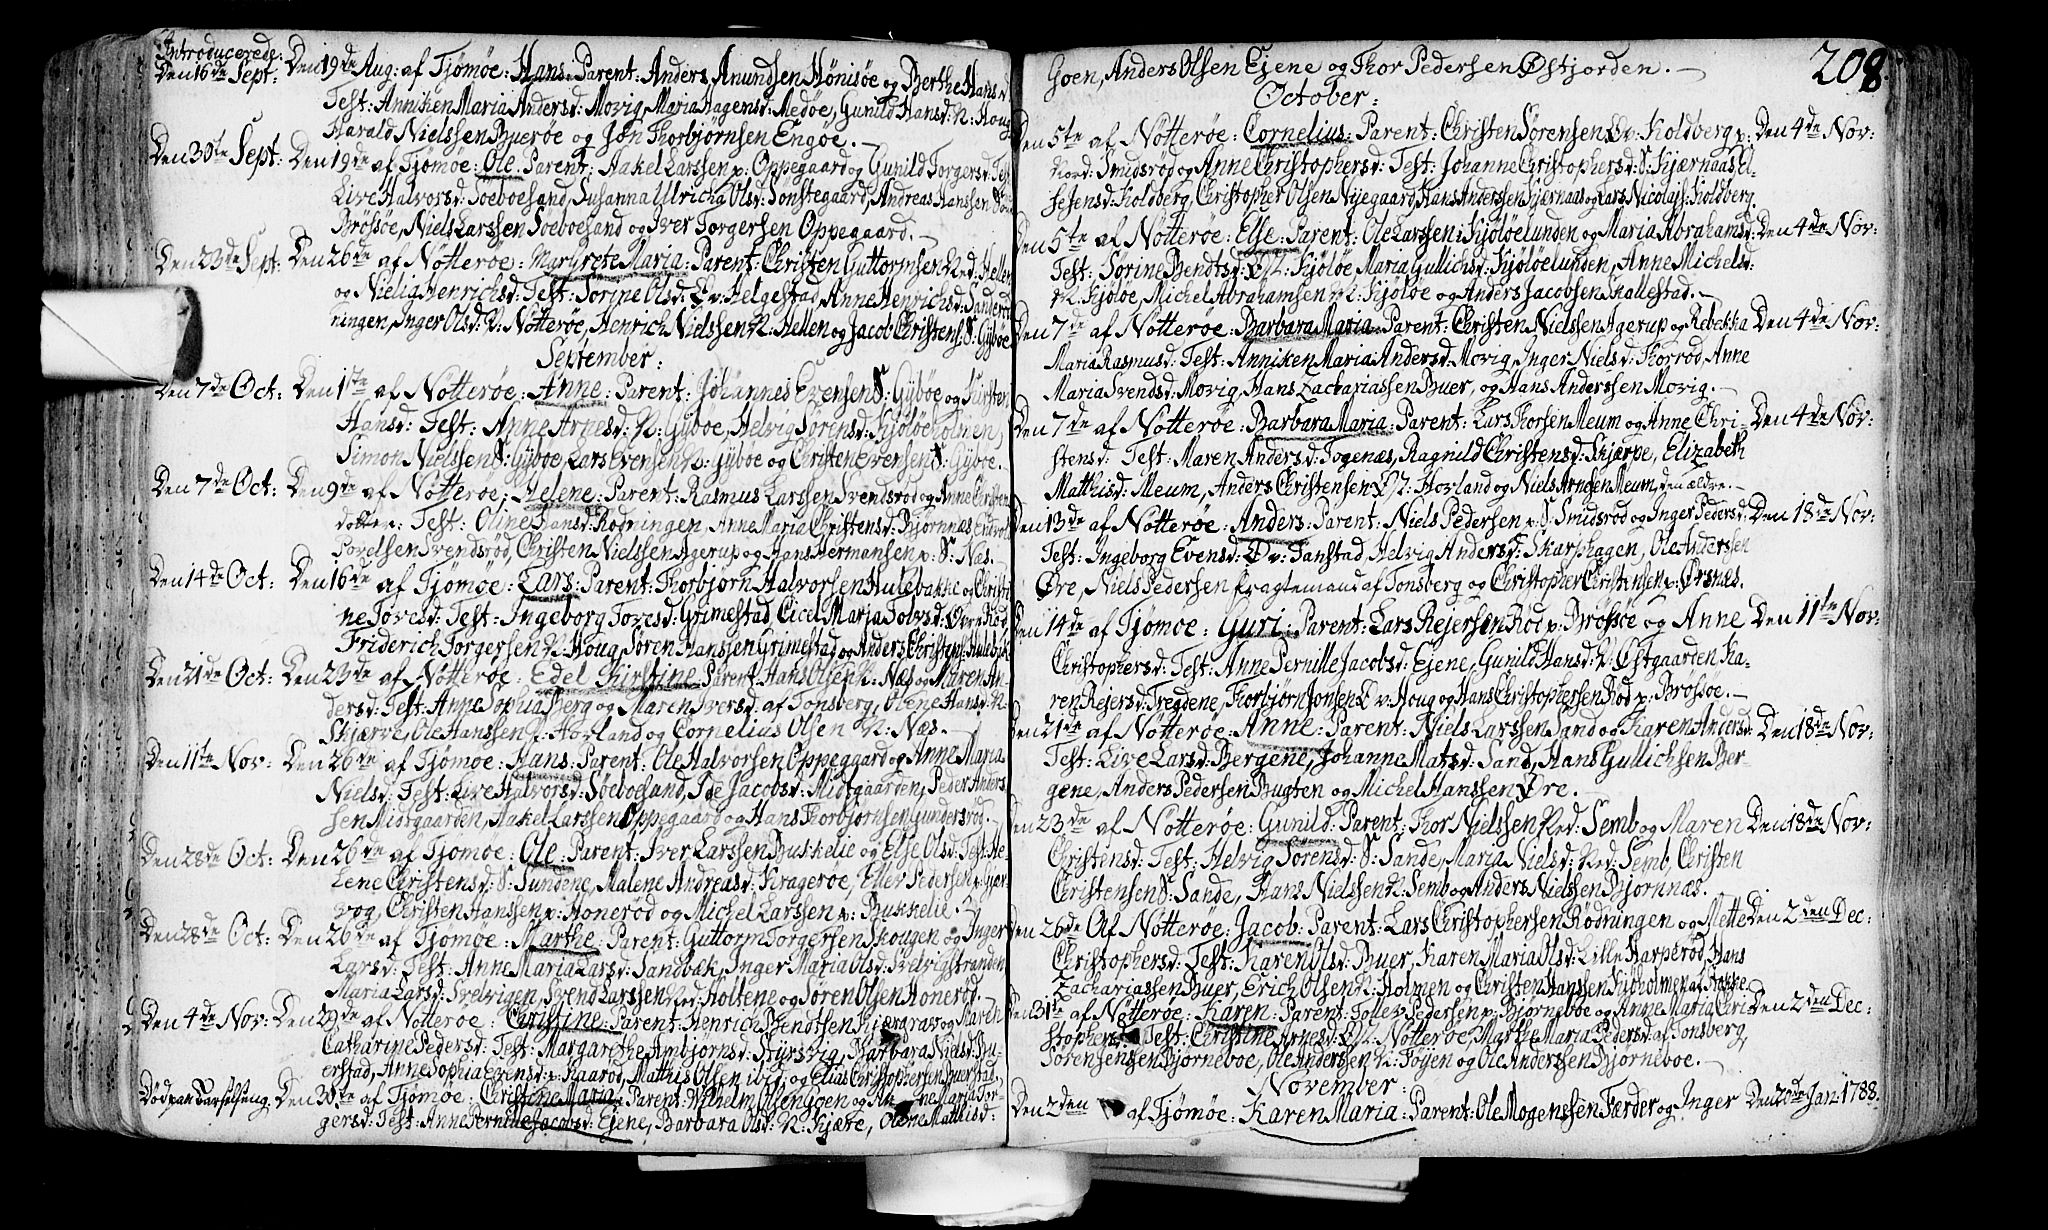 Introducerede:
Den 16de Sept: Den 19de Aug: af Tjømøe: Hans: Parent: Anders Anundsen Hönisöe og Berthe Hansd
Test: Anniken Maria Andersd: Movig, Maria Hagensd: Medöe, Gunild Hansd: N: Houg
Harald Nielssen Buerøe og Jon Thorbjørnsen Engøe. —
Den 30te Sept: Den 19de af Tjømøe: Ole: Parent: Aakel Larssen p: Oppegaard og Gunild Torgersd: Test
Live Halvorsd: Söeboesand, Susanna Ulricha Olsd: Tonstegaard, Andreas Hanssen
Brössöe, Niels Larssen Söeboesand og Iver Torgersen Oppegaard. —
Den 23de Sept: Den 26de af Nøtterøe: Margrete Maria: Parent: Christen Guttormsen Ned: Hellen
og Nielig Henrichsd: Test: Sørine Olsd: Øv: Helgestad, Anne Henrichsd: Sanderød
ningen, Inger Olsd: N: Nøtterøe, Henrich Nielssen N: Hellen og Jacob Christens: S: Gyböe
September:
Den 7de Oct: Den 1ste af Nøtterøe: Anne: Parent: Johannes Evensen S: Gyböe og Kirsten
Hansd: Test: Anne Arnesd: N: Gyböe, Helvig Sörensd: Kjölöeholmen,
Simon Nielssen S: Gyböe Lars Evensen N: Gyböe og Christen Evensen S: Gyböe.
Den 7de Oct: Den 9de af Nøtterøe: Helene: Parent: Rasmus Larssen Svendsrød og Anne Christen
dotter: Test: Oline Hansd: Rödningen, Anne Maria Christensd: Bjørnnæs
Povelsen Svendsröd, Christen Nielssen Agerup og Hans Hermansen p: S: Næs. —
Den 14de Oct: Den 16de af Tjømøe: Lars: Parent: Thorbjørn Halvorsen Hulebakke og Christi
ne Toresd: Test: Ingeborg Toresd: Grimestad, Cicel Maria Jobsd: Øvre Röd
Friderich Torgersen N: Houg, Sören Hanssen Grimestad og Anders Christens: Hulebak
Den 21de Oct: Den 23de af Nøtterøe: Edel Kirstine: Parent: Hans Olsen N: Næs og Maren An-
dersd: Test: Anne Sophia Berg og Maren Iversd: af Tonsberg, Olene Hansd: N:
Skjærve, Ole Hanssen Ø: Horland og Cornelius Olsen N: Næs. —
Den 11te Nov: Den 26de af Tjømøe: Hans: Parent: Ole Halvorsen Oppegaard og Anne Maria
Nielsd: Test: Live Halvorsd: Söeboesand, Ide Jacobsd: Midtgaarden, Peder Anders
sen Midtgaarden, Aakel Larssen Oppegaard og Hans Thorbjørnsen Gundersröd. —
Den 28de Oct: Den 26de af Tjømøe: Ole: Parent: Iver Larssen Buskelie og Else Olsd: Test: He-
lene Christensd: S: Sundene, Malene Andreasd: Kragerøe, Eller Pedersen p: Gjær
vog, Christen Hanssen p: Honerød og Michel Larssen p: Buskelie.
Den 28de Oct: Den 26de af Tjømøe: Marthe: Parent: Guttorm Torgersen Skougen og Inger
Larsd: Test: Anne Maria Larsd: Sandbæk, Inger Maria Olsd: Svelvigstranden
Maria Larsd: Svelvigen, Svend Larssen Ned: Holtene og Søren Olsen Honerød.
Den 4de Nov: Den 29de af Nøtterøe: Christine: Parent: Henrich Bendtsen Kjærgrav og Maren
Catharine Pedersd: Test: Margarethe Ambjørnsd: Buysvig, Barbara Nielsd: Bu-
erstad, Anne Sophia Evensd: p: Kaaröd, Mathis Olsen ibid: og Elias Christophersen Buerstad.
Död paa Barselseng. Den 30te af Tjømøe: Christine Maria: Parent: Vilhelm Olsen Goen og Anne Maria Tor-
gersd: Test: Anne Pernille Jacobsd: Ejene, Barbara Olsd: N: Kjære, Olene Mathisd:
208.
Goen, Anders Olsen Ejene og Thor Pedersen Østjorden. —
October:
Den 5te af Nøtterøe: Cornelius: Parent: Christen Sørensen Øv: Koldberg p: Den 4de Nov:
Nord: Smidsröd og Anne Christophersd: Test: Johanne Christophersd: S: Kjærnaas, El-
sesensd: Koldberg, Christopher Olsen Nyegaard, Hans Anderssen Kjærnaas og Lars Nicolajs: Koldberg.
Den 5te af Nøtterøe: Else: Parent: Ole Larssen i Kjölöelunden og Maria Abrahamsd: Den 4de Nov:
Test: Sørine Bendtsd: Ø: Kjölöe, Maria Gullichsd: Kjölöelunden, Anne Michelsd:
N: Kjölöe, Michel Abrahamsen N: Kjölöe og Anders Jacobsen Skallestad. —
Den 7de af Nøtterøe: Barbara Maria: Parent: Christen Nielssen Agerup og Rebekka Den 4de Nov:
Maria Rasmusd: Test: Anniken Maria Andersd: Movig, Inger Nielsd: Thorröd, Anne
Maria Svendsd: Movig, Hans Zachariassen Buer, og Hans Anderssen Movig. —
Den 7de af Nøtterøe: Barbara Maria: Parent: Lars Thorsen Meum og Anne Chri- Den 4de Nov:
stensd: Test: Maren Andersd: Togenæs, Ragnild Christensd: Skjærve, Elizabeth
Matthisd: Meum, Anders Christensen N: Horland og Niels Arnesen Meum, den ældre. —
Den 13de af Nøtterøe: Anders: Parent: Niels Pedersen p: S: Smidsröd og Inger Pedersd: Den 18de Nov:
Test: Ingeborg Evensd: Øv: Tanstad, Helvig Andersd: Skarphagen, Ole Andersen
Øre, Niels Pedersen Fragtemand af Tonsberg og Christopher Christensen p: Ørsnes.
Den 14de af Tjømøe: Guri: Parent: Lars Rejersen Röd p: Brössöe og Anne Den 11te Nov:
Christophersd: Test: Anne Pernille Jacobsd: Ejene, Gunild Hansd: N: Østgaarden, Ka-
ren Rejersd: Tregdene, Thorbjørn Jonsen Øv: Houg og Hans Christophersen Röd p: Brössöe. —
Den 21de af Nøtterøe: Anne: Parent: Niels Larssen Sand og Karen Andersd: Den 18de Nov:
Test: Live Larsd: Bergene, Johanne Matsd: Sand, Hans Gullichsen Ber-
gene, Anders Pedersen Bugten og Michel Hanssen Øre. —
Den 23de af Nøtterøe: Gunild: Parent: Thor Nielssen Ned: Semb og Maren Den 18de Nov:
Christensd: Test: Helvig Sørensd: S: Sande, Maria Nielsd: Ned: Semb, Christen
Christensen S: Sande, Hans Nielssen N: Semb og Anders Nielssen Bjørnnæs.
Den 26de Af Nøtterøe: Jacob: Parent: Lars Christophersen Rödningen og Mette Den 2den Dec:
Christophersd: Test: Karen Olsd: Buer, Karen Maria Olsd: Lille Harperöd, Hans
Zachariassen Buer, Erich Olsen N: Holmen og Christen Hanssen Kjöholmen af Stokke.
Den 31te af Nøtterøe: Karen: Parent: Tollev Pedersen p: Bjørneboe og Anne Maria Cri Den 2den Dec:
stophersd: Test: Christine Arnesd: N: Nøtterøe, Marthe Maria Pedersd: af Tonsberg,
Sørensen Bjørneboe, Ole Anderssen N: Föyen og Ole Anderssen Bjørneboe. —
November:
Den 2den af Tjømøe: Karen Maria: Parent: Ole Mogenssen Færder og Inger Den 20de Jan: 1788.